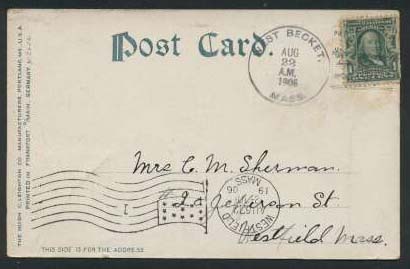 Post Card.
WEST BECKET,
AUG
22
A.M.
1906
MASS.
Mrs C. M. Sherman.
St.
Westfield Mass.
WESTFIELD
MASS
19 06
1
THIS SIDE IS FOR THE ADDRESS.
THE HUGH C. LEIGHTON CO., MANUFACTURERS, PORTLAND, ME., U.S.A.
PRINTED IN FRANKFORT MAIN, GERMANY